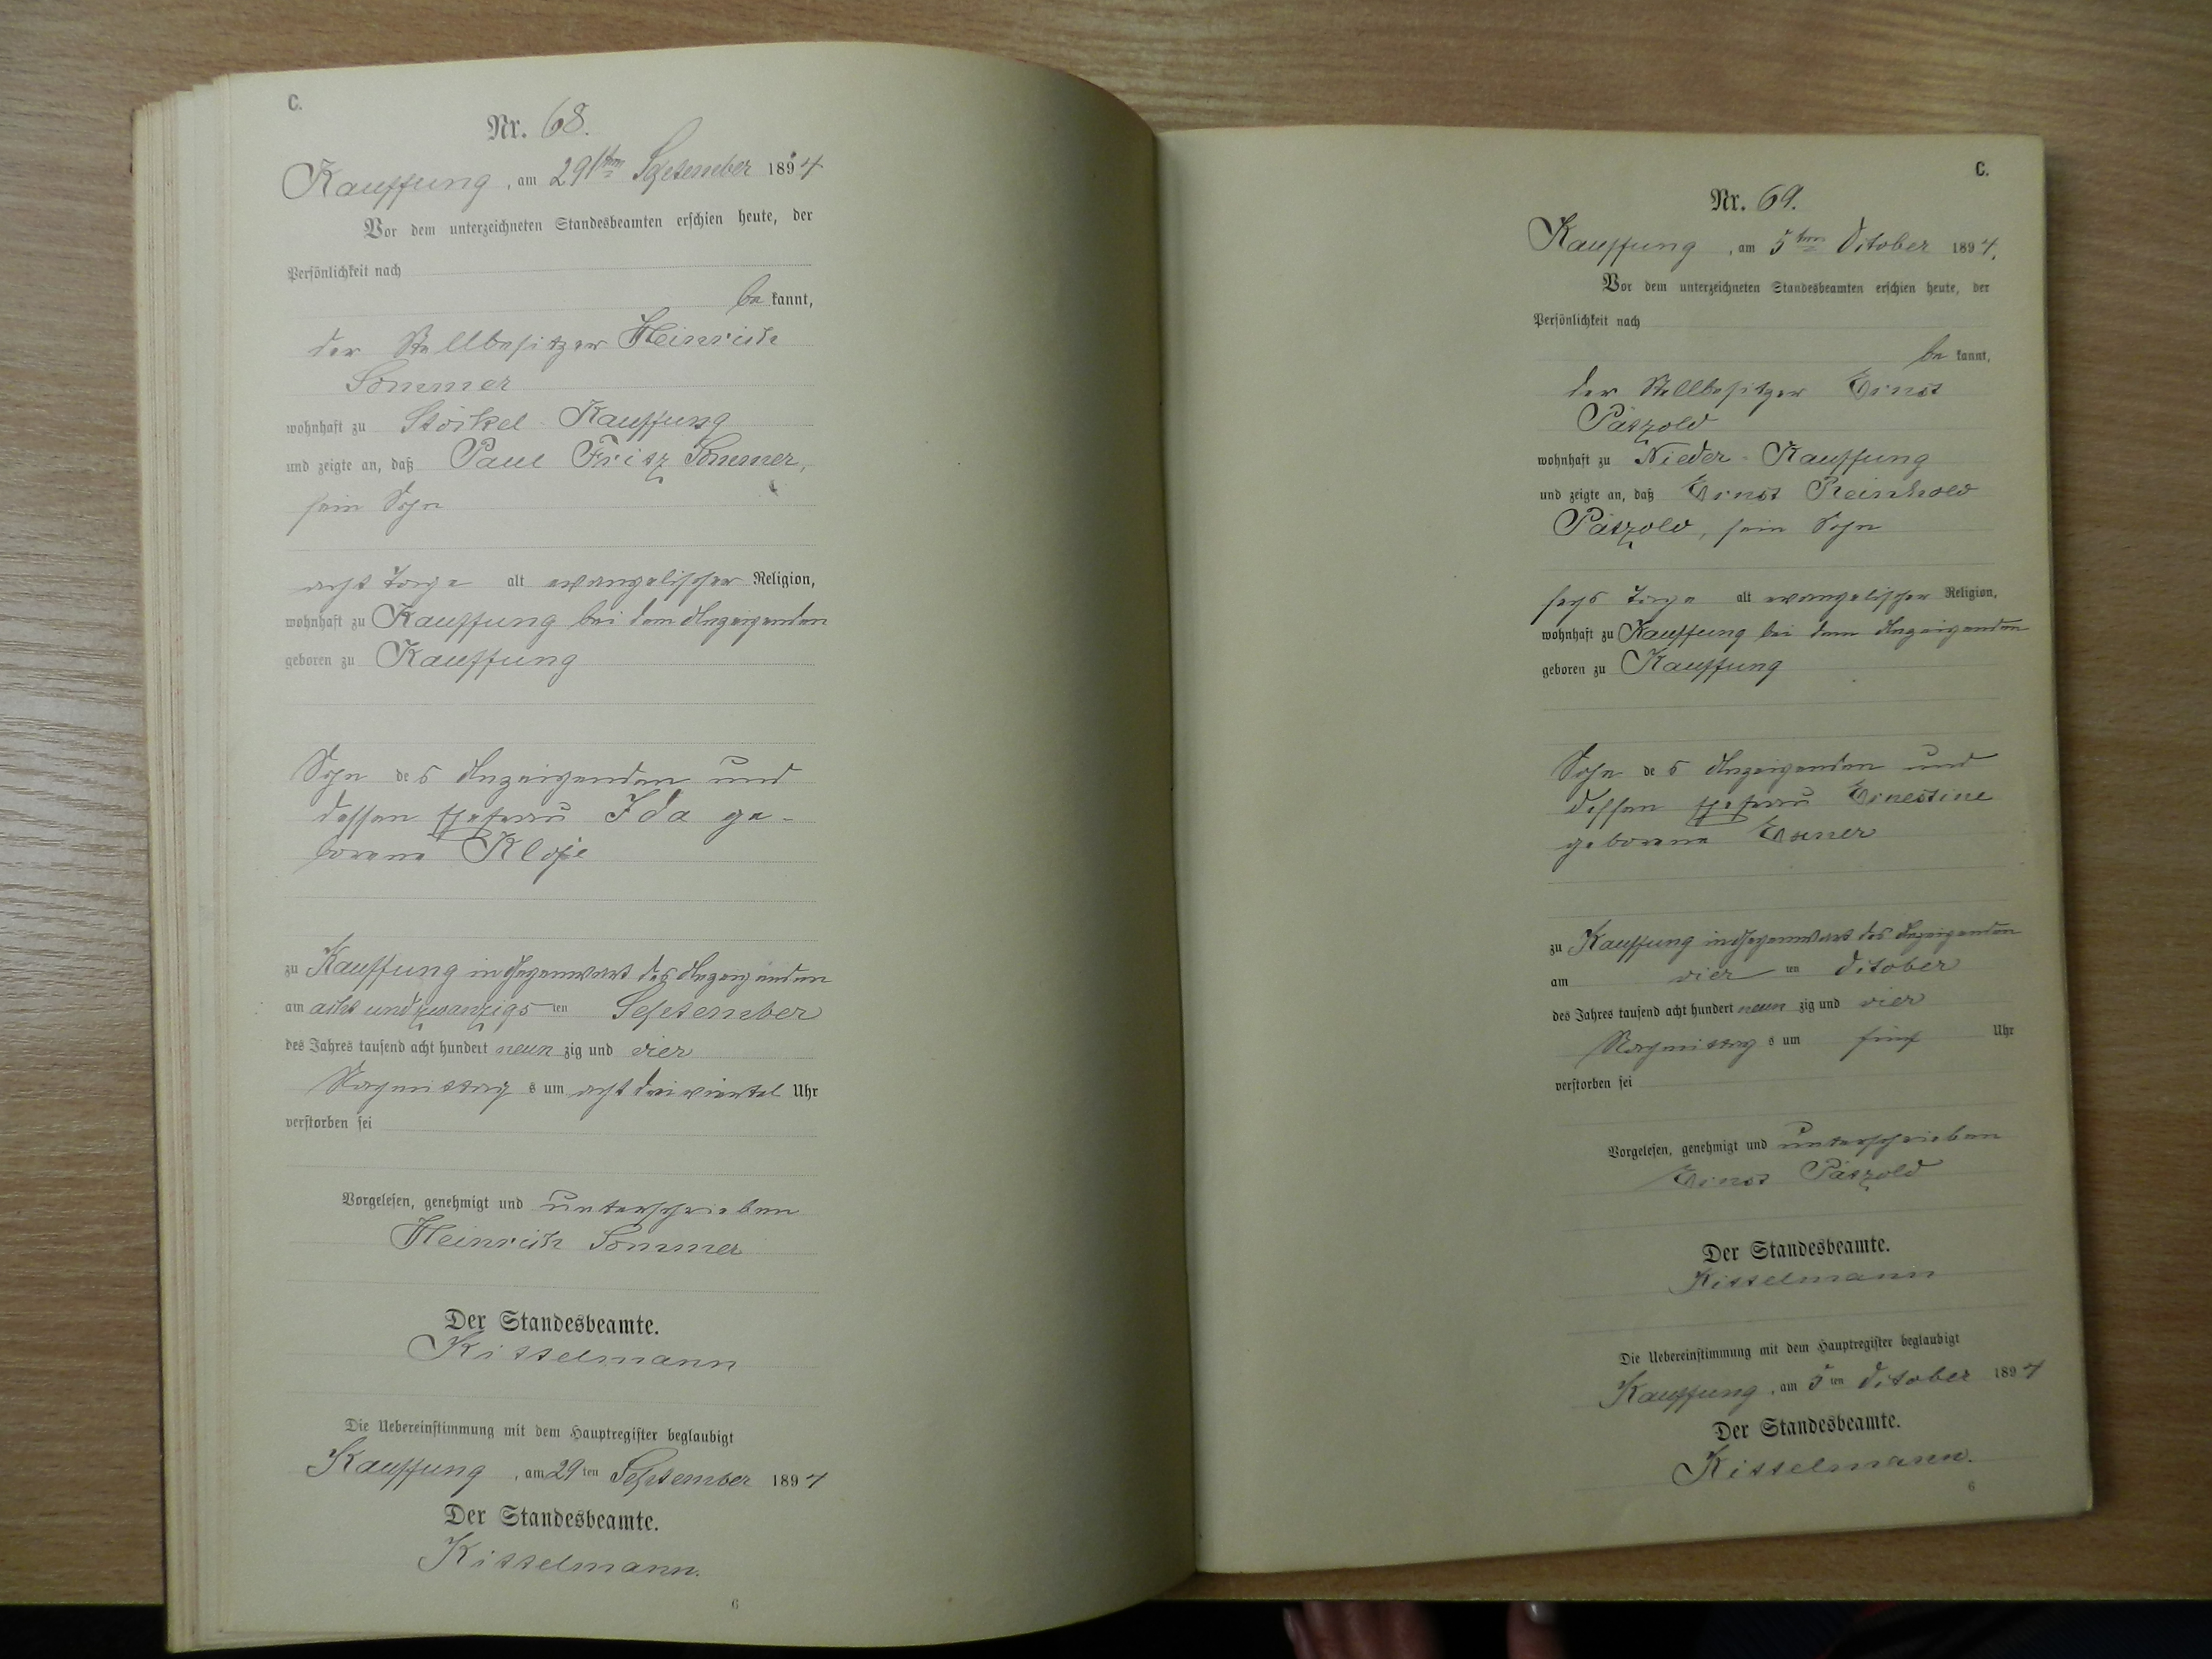 C.
Nr. 68.
Kauffung, am 29ten September 1894
Vor dem unterzeichneten Standesbeamten erschien heute, der
Persönlichkeit nach
be kannt,
der Stellbesitzer Heinrich
Sommer
wohnhaft zu Stöckel-Kauffung
und zeigte an, daß Paul Fritz Sommer,
sein Sohn
acht Tage alt evangelischer Religion,
wohnhaft zu Kauffung bei dem Anzeigenden
geboren zu Kauffung
Sohn des Anzeigenden und
dessen Ehefrau Ida ge-
borene Klose
zu Kauffung in Gegenwart des Anzeigenden
am acht und zwanzigsten September
des Jahres tausend acht hundert neun zig und vier
Nachmittags um acht dreiviertel Uhr
verstorben sei
Vorgelesen, genehmigt und unterschrieben
Heinrich Sommer
Der Standesbeamte.
Kittelmann
Die Uebereinstimmung mit dem Hauptregister beglaubigt
Kauffung, am 29ten September 1894
Der Standesbeamte.
Kittelmann.
6
C.
Nr. 69.
Kauffung, am 5ten October 1894.
Vor dem unterzeichneten Standesbeamten erschien heute, der
Persönlichkeit nach
be kannt,
der Stellbesitzer Ernst
Pätzold
wohnhaft zu Nieder-Kauffung
und zeigte an, daß Ernst Reinhold
Pätzold, sein Sohn
sechs Tage alt evangelischer Religion,
wohnhaft zu Kauffung bei dem Anzeigenden
geboren zu Kauffung
Sohn des Anzeigenden und
dessen Ehefrau Ernestine
geborene Exner
zu Kauffung in Gegenwart des Anzeigenden
am vierten October
des Jahres tausend acht hundert neun zig und vier
Nachmittags um fünf Uhr
verstorben sei
Vorgelesen, genehmigt und unterschrieben
Ernst Pätzold
Der Standesbeamte.
Kittelmann
Die Uebereinstimmung mit dem Hauptregister beglaubigt
Kauffung, am 5ten October 1894
Der Standesbeamte.
Kittelmann.
6